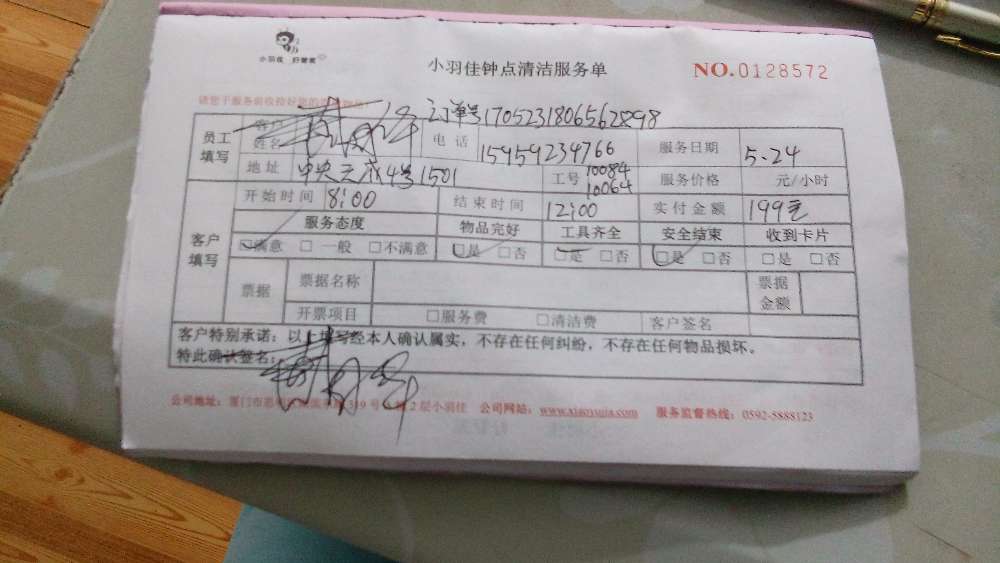 小羽佳 好管家
小羽佳钟点清洁服务单
NO.0128572
请您于服务前收拾好您的
订单号
员工填写
客户姓名
电话 15959234766
服务日期 5.24
地址 4号1501
工号 10084 10064
服务价格 元/小时
客户填写
开始时间 8:00
结束时间 12:00
实付金额 199元
服务态度 物品完好 工具齐全 安全结束 收到卡片
☑满意 □一般 □不满意 ☑是 □否 ☑是 □否 ☑是 □否 □是 □否
票据 票据名称 票据金额
开票项目 □服务费 □清洁费 客户签名
客户特别承诺：以上填写经本人确认属实，不存在任何纠纷，不存在任何物品损坏。
特此确认签名：
公司地址：厦门市思明区 2层小羽佳 公司网站：www.xiaoyujia.com 服务监督热线：0592-5888123